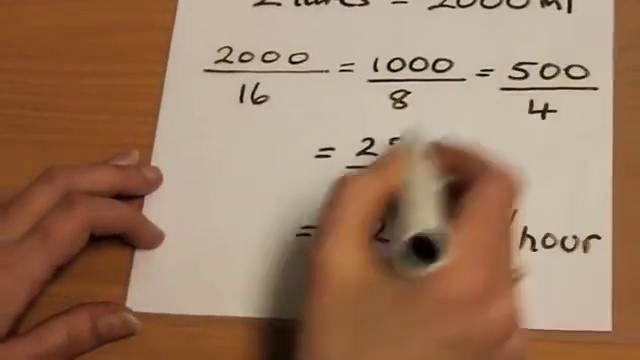 2 litres = 2000ml
2000/16 = 1000/8 = 500/4
=
= /hour